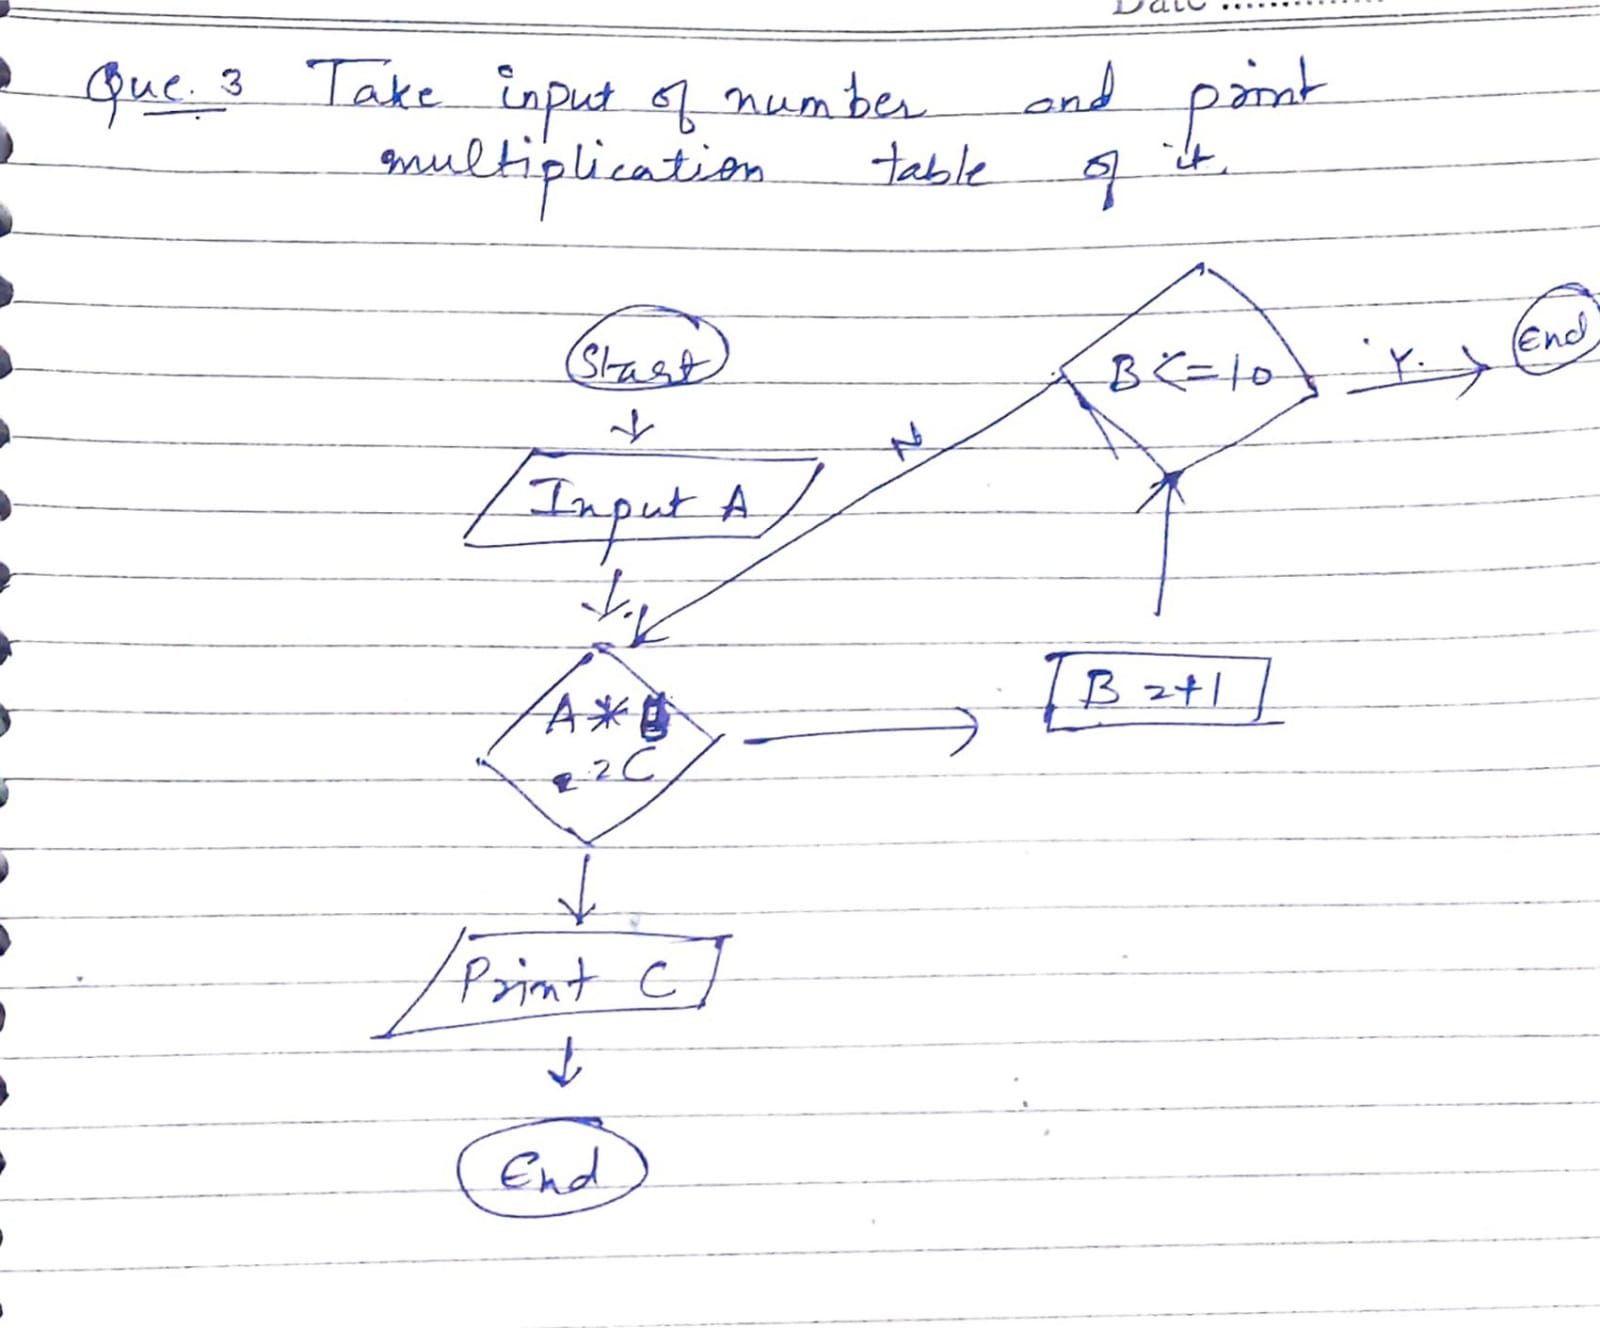 Date ..............
Que. 3 Take input of number and print
multiplication table of it.
Start
Input A
A*
=C
Print C
End
B =+1
B<=10
N
Y.
End